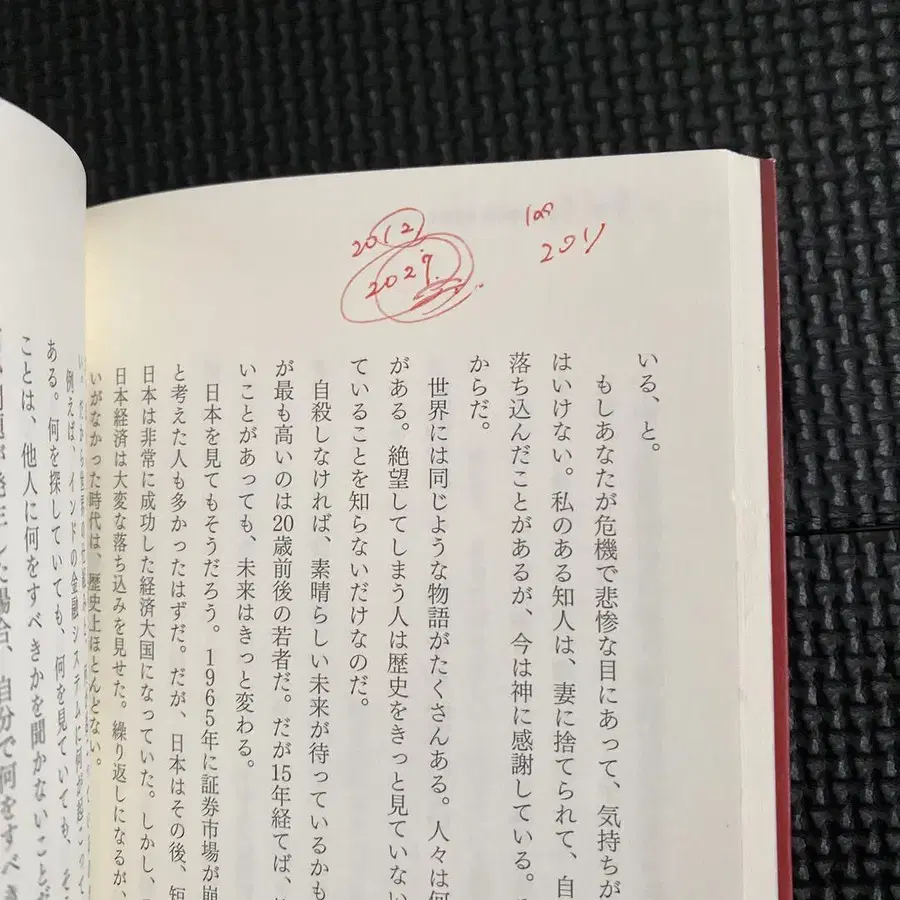 2012
2029
201
いる、と。
もしあなたが危機で悲惨な目にあって、気持ちが
はいけない。私のある知人は、妻に捨てられて、自
落ち込んだことがあるが、今は神に感謝している。
からだ。
世界には同じような物語がたくさんある。人々は何
がある。絶望してしまう人は歴史をきっと見ていない
ていることを知らないだけなのだ。
自殺しなければ、素晴らしい未来が待っているかも
が最も高いのは20歳前後の若者だ。だが15年経てば、
いことがあっても、未来はきっと変わる。
日本を見てもそうだろう。1965年に証券市場が崩
と考えた人も多かったはずだ。だが、日本はその後、短
日本は非常に成功した経済大国になっていた。しかし、
日本経済は大変な落ち込みを見せた。繰り返しになるが、
いがなかった時代は、歴史上ほとんどない。
例えば、インドの金融システムに何が起こって
ある。何を探していても、何を見ていても、そ
ことは、他人に何をすべきかを聞かないことだ
問題が発生した場合、自分で何をすべき